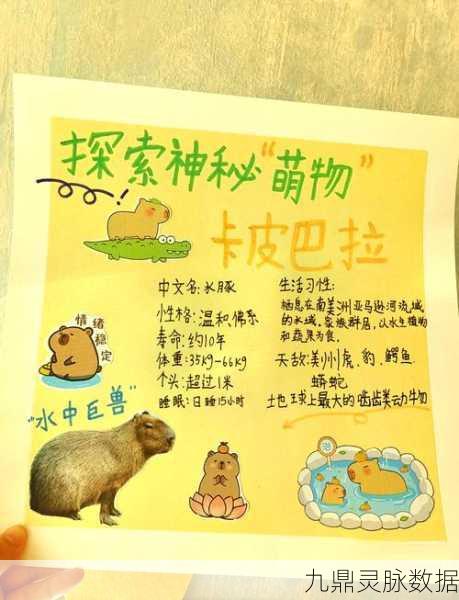 探索神秘“萌物”
卡皮巴拉
中文名:水豚
性格:温和,佛系
寿命:约10年
体重:35kg-66kg
个头:超过1米
睡眠:日睡15小时
生活习性:
栖息在南美洲亚马逊河流域
的水域。家族群居,以水生植物
和蔬果为食。
天敌:美州虎、豹、鳄鱼
蟒蛇
地球上最大的啮齿类动物
情绪稳定
“水中巨兽”
九鼎灵脉数据